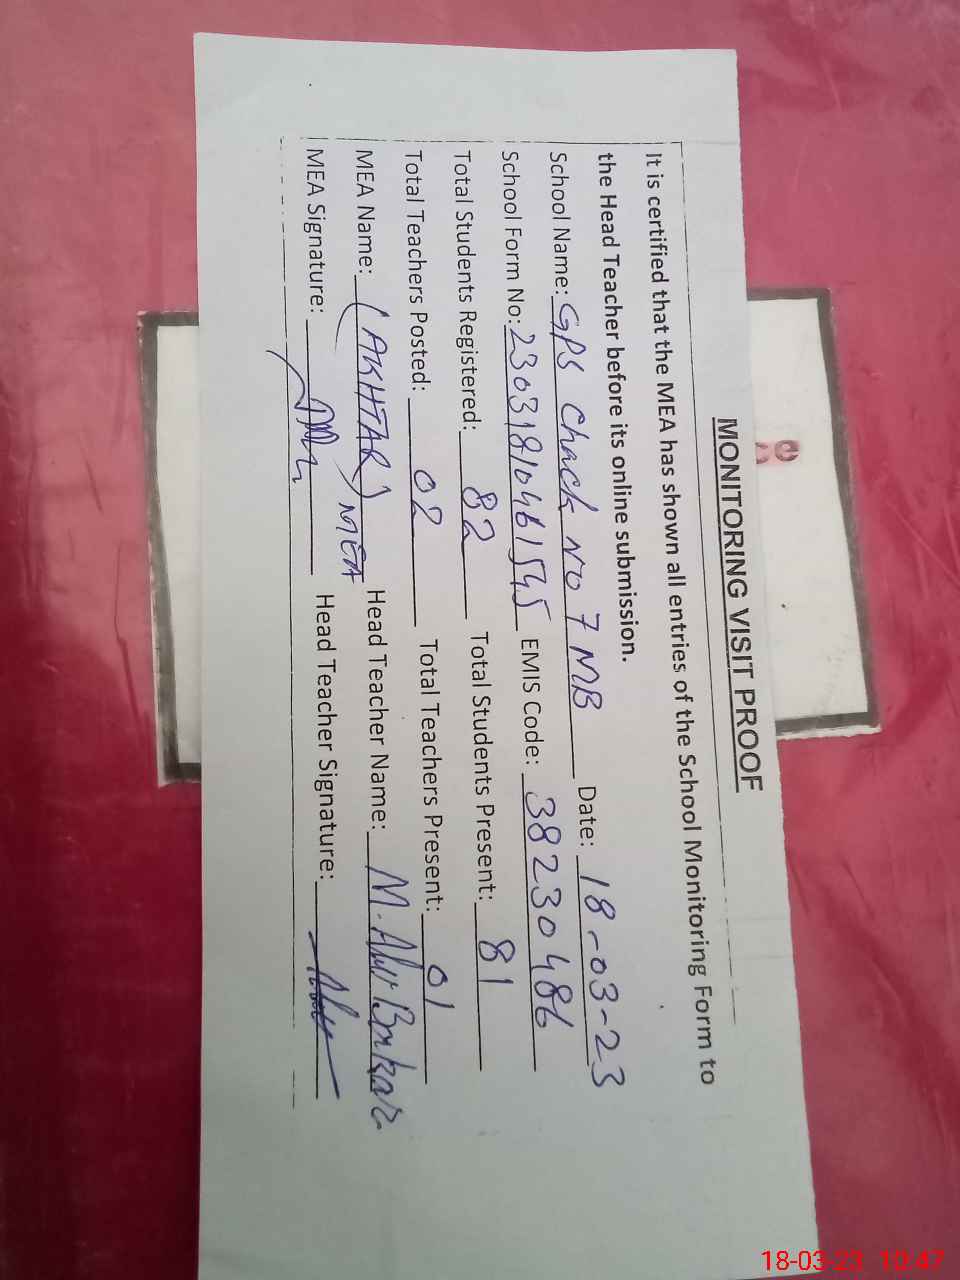 MONITORING VISIT PROOF
It is certified that the MEA has shown all entries of the School Monitoring Form to
the Head Teacher before its online submission.
School Name: GPS Chack No 7 MB Date: 18-03-23
School Form No: 23031810461545 EMIS Code: 38230486
Total Students Registered: 82 Total Students Present: 81
Total Teachers Posted: 02 Total Teachers Present: 01
MEA Name: (AKHTAR) MEA Head Teacher Name: M. Abu Bakar
MEA Signature: Head Teacher Signature:
18-03-23 10:47